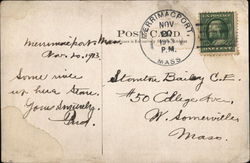 MERRIMACPORT,
NOV
20
1913
P.M.
MASS
POST CARD
Merrimacport Mass
Nov. 20, 1913
Some
up here
Yours Sincerely,
Stanton Bailey C.E.
#50 College Ave,
W. Somerville,
Mass.